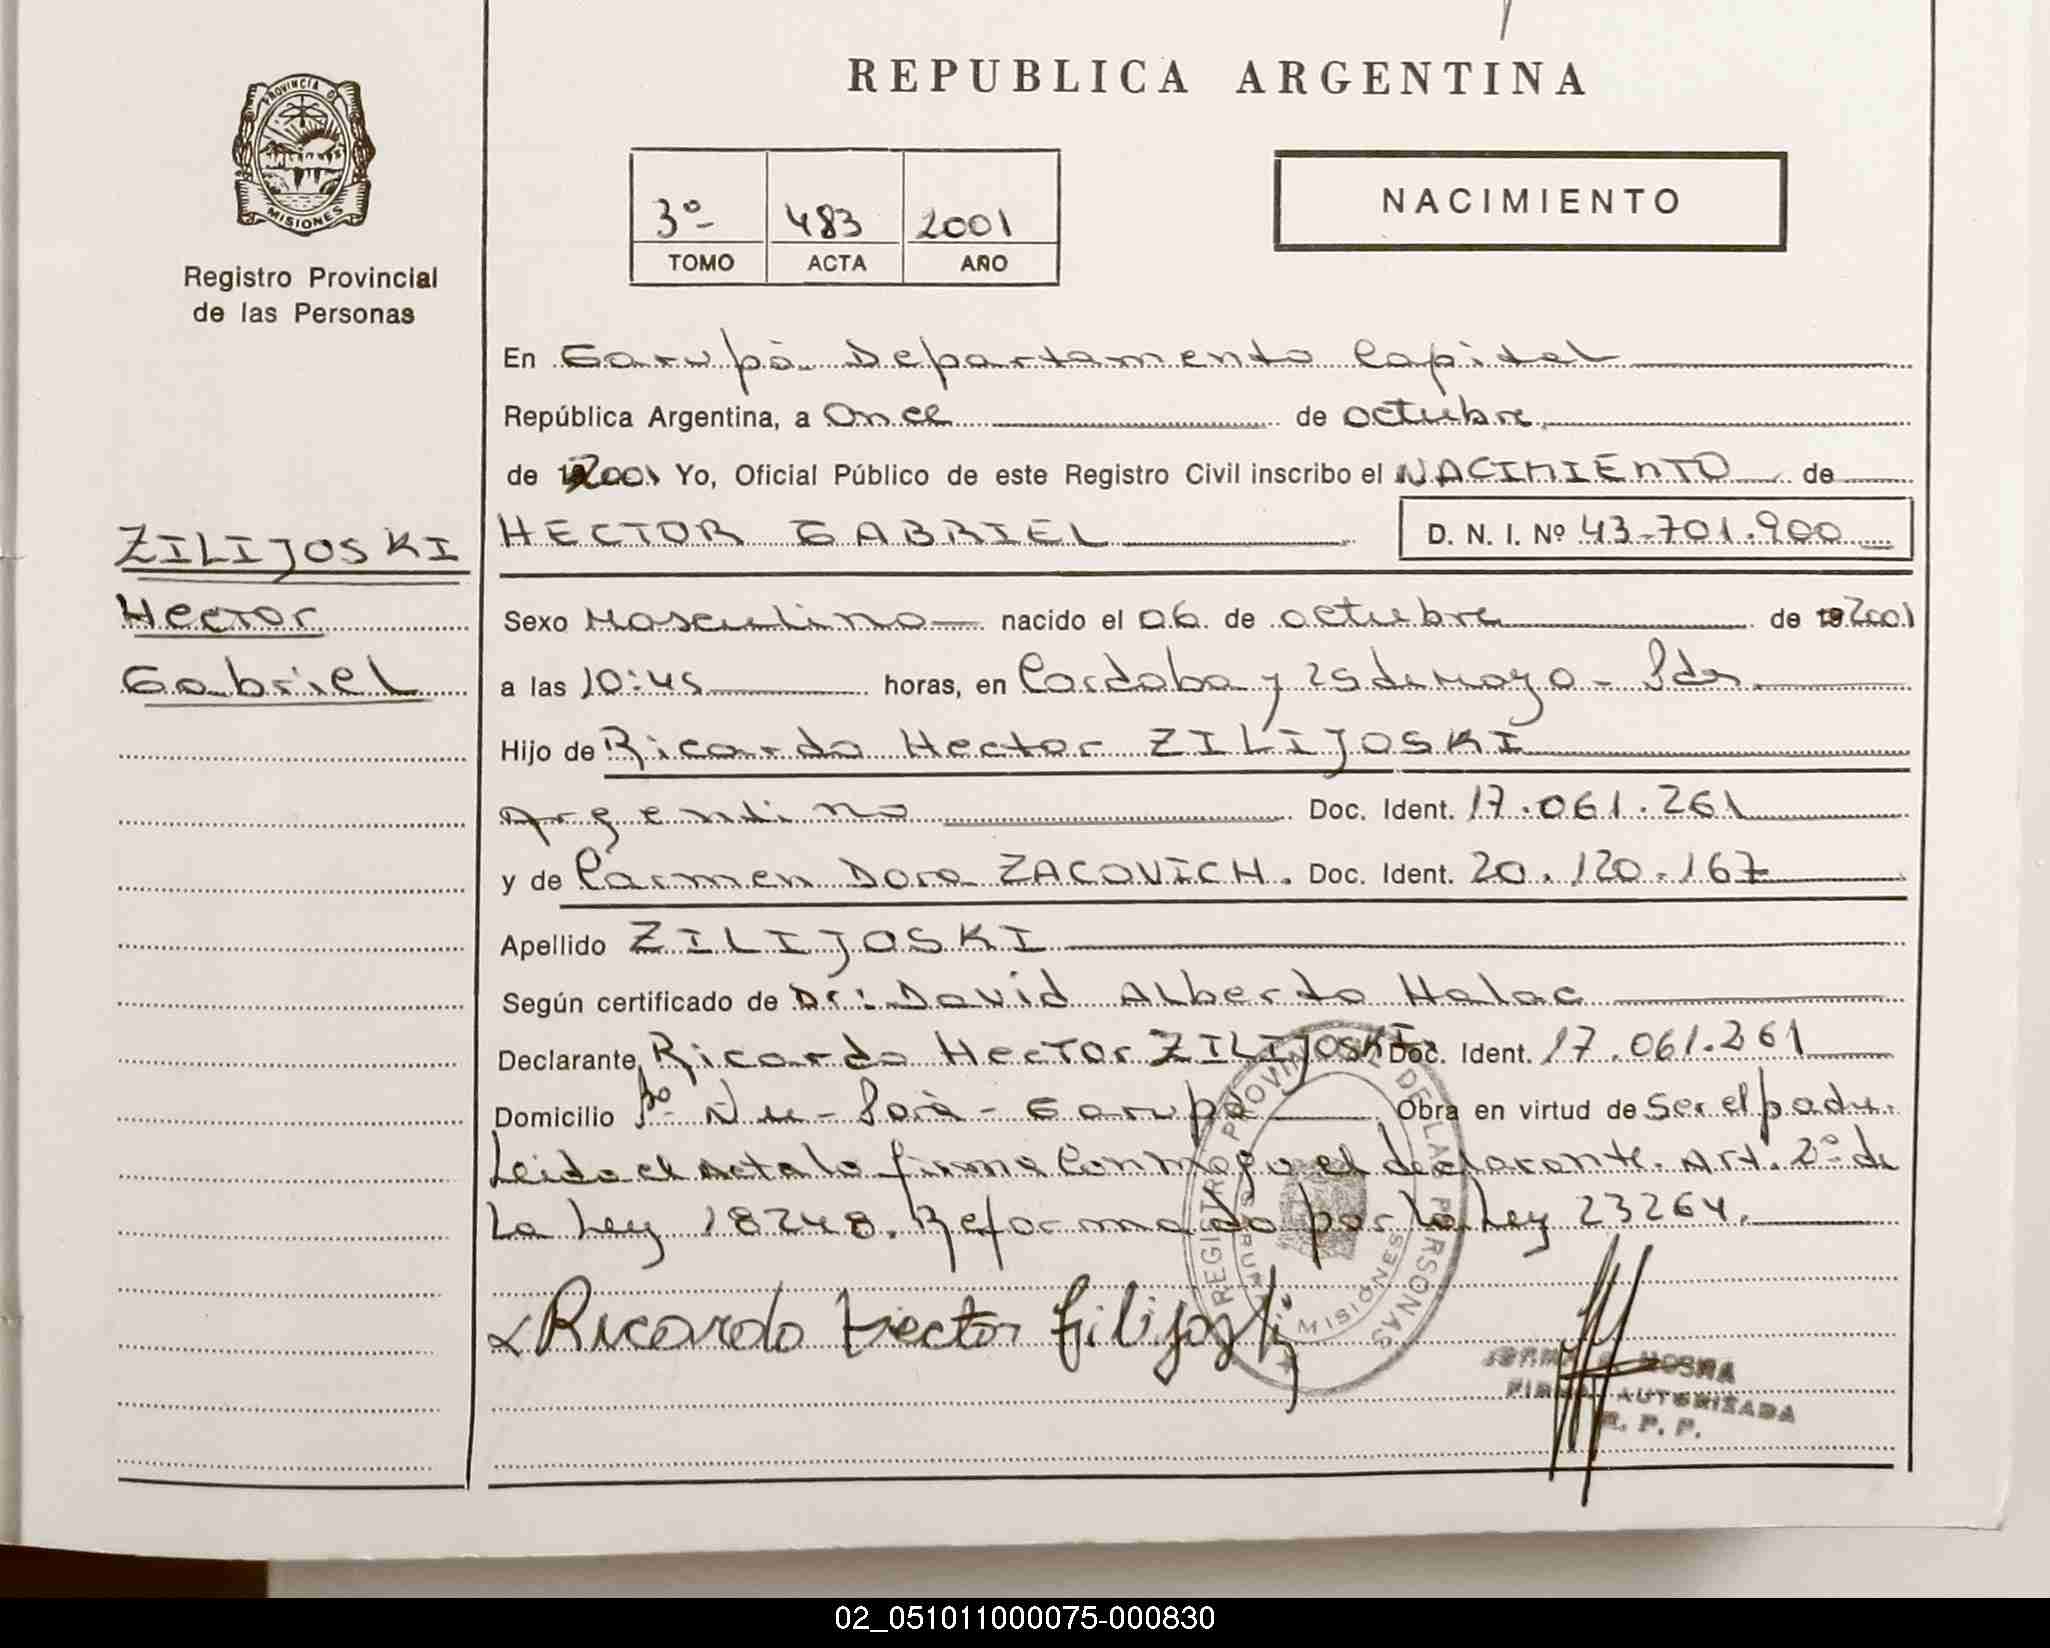 REPUBLICA ARGENTINA
PROVINCIA D
MISIONES
Registro Provincial
de las Personas
3º 483 2001
TOMO ACTA AÑO
NACIMIENTO
En Garupá Departamento Capital
República Argentina, a Once de octubre
de 2001 Yo, Oficial Público de este Registro Civil inscribo el NACIMIENTO de
ZILIJOSKI
Hector
Gabriel
HECTOR GABRIEL D. N. I. Nº 43.701.900
Sexo Masculino nacido el 06 de octubre de 192001
a las 10:45 horas, en Cordoba y 25 de Mayo - Pdas.
Hijo de Ricardo Hector ZILIJOSKI
Argentino Doc. Ident. 17.061.261
y de Carmen Dora ZACOVICH. Doc. Ident. 20.120.167
Apellido ZILIJOSKI
Según certificado de Dr: David Alberto Halac
Declarante Ricardo Hector ZILIJOSKI Doc. Ident. 17.061.261
Domicilio Bº Ñu - Porá - Garupá Obra en virtud de ser el padre.
Leida el Acta la firma conmigo el declarante. Art. 2º de
La Ley 18248. Reformado por la Ley 23264.
Ricardo Hector Zilijoski
REGISTRO PROVINCIAL DE LAS PERSONAS
MISIONES
FIRMA AUTORIZADA
R. P. P.
02_051011000075-000830